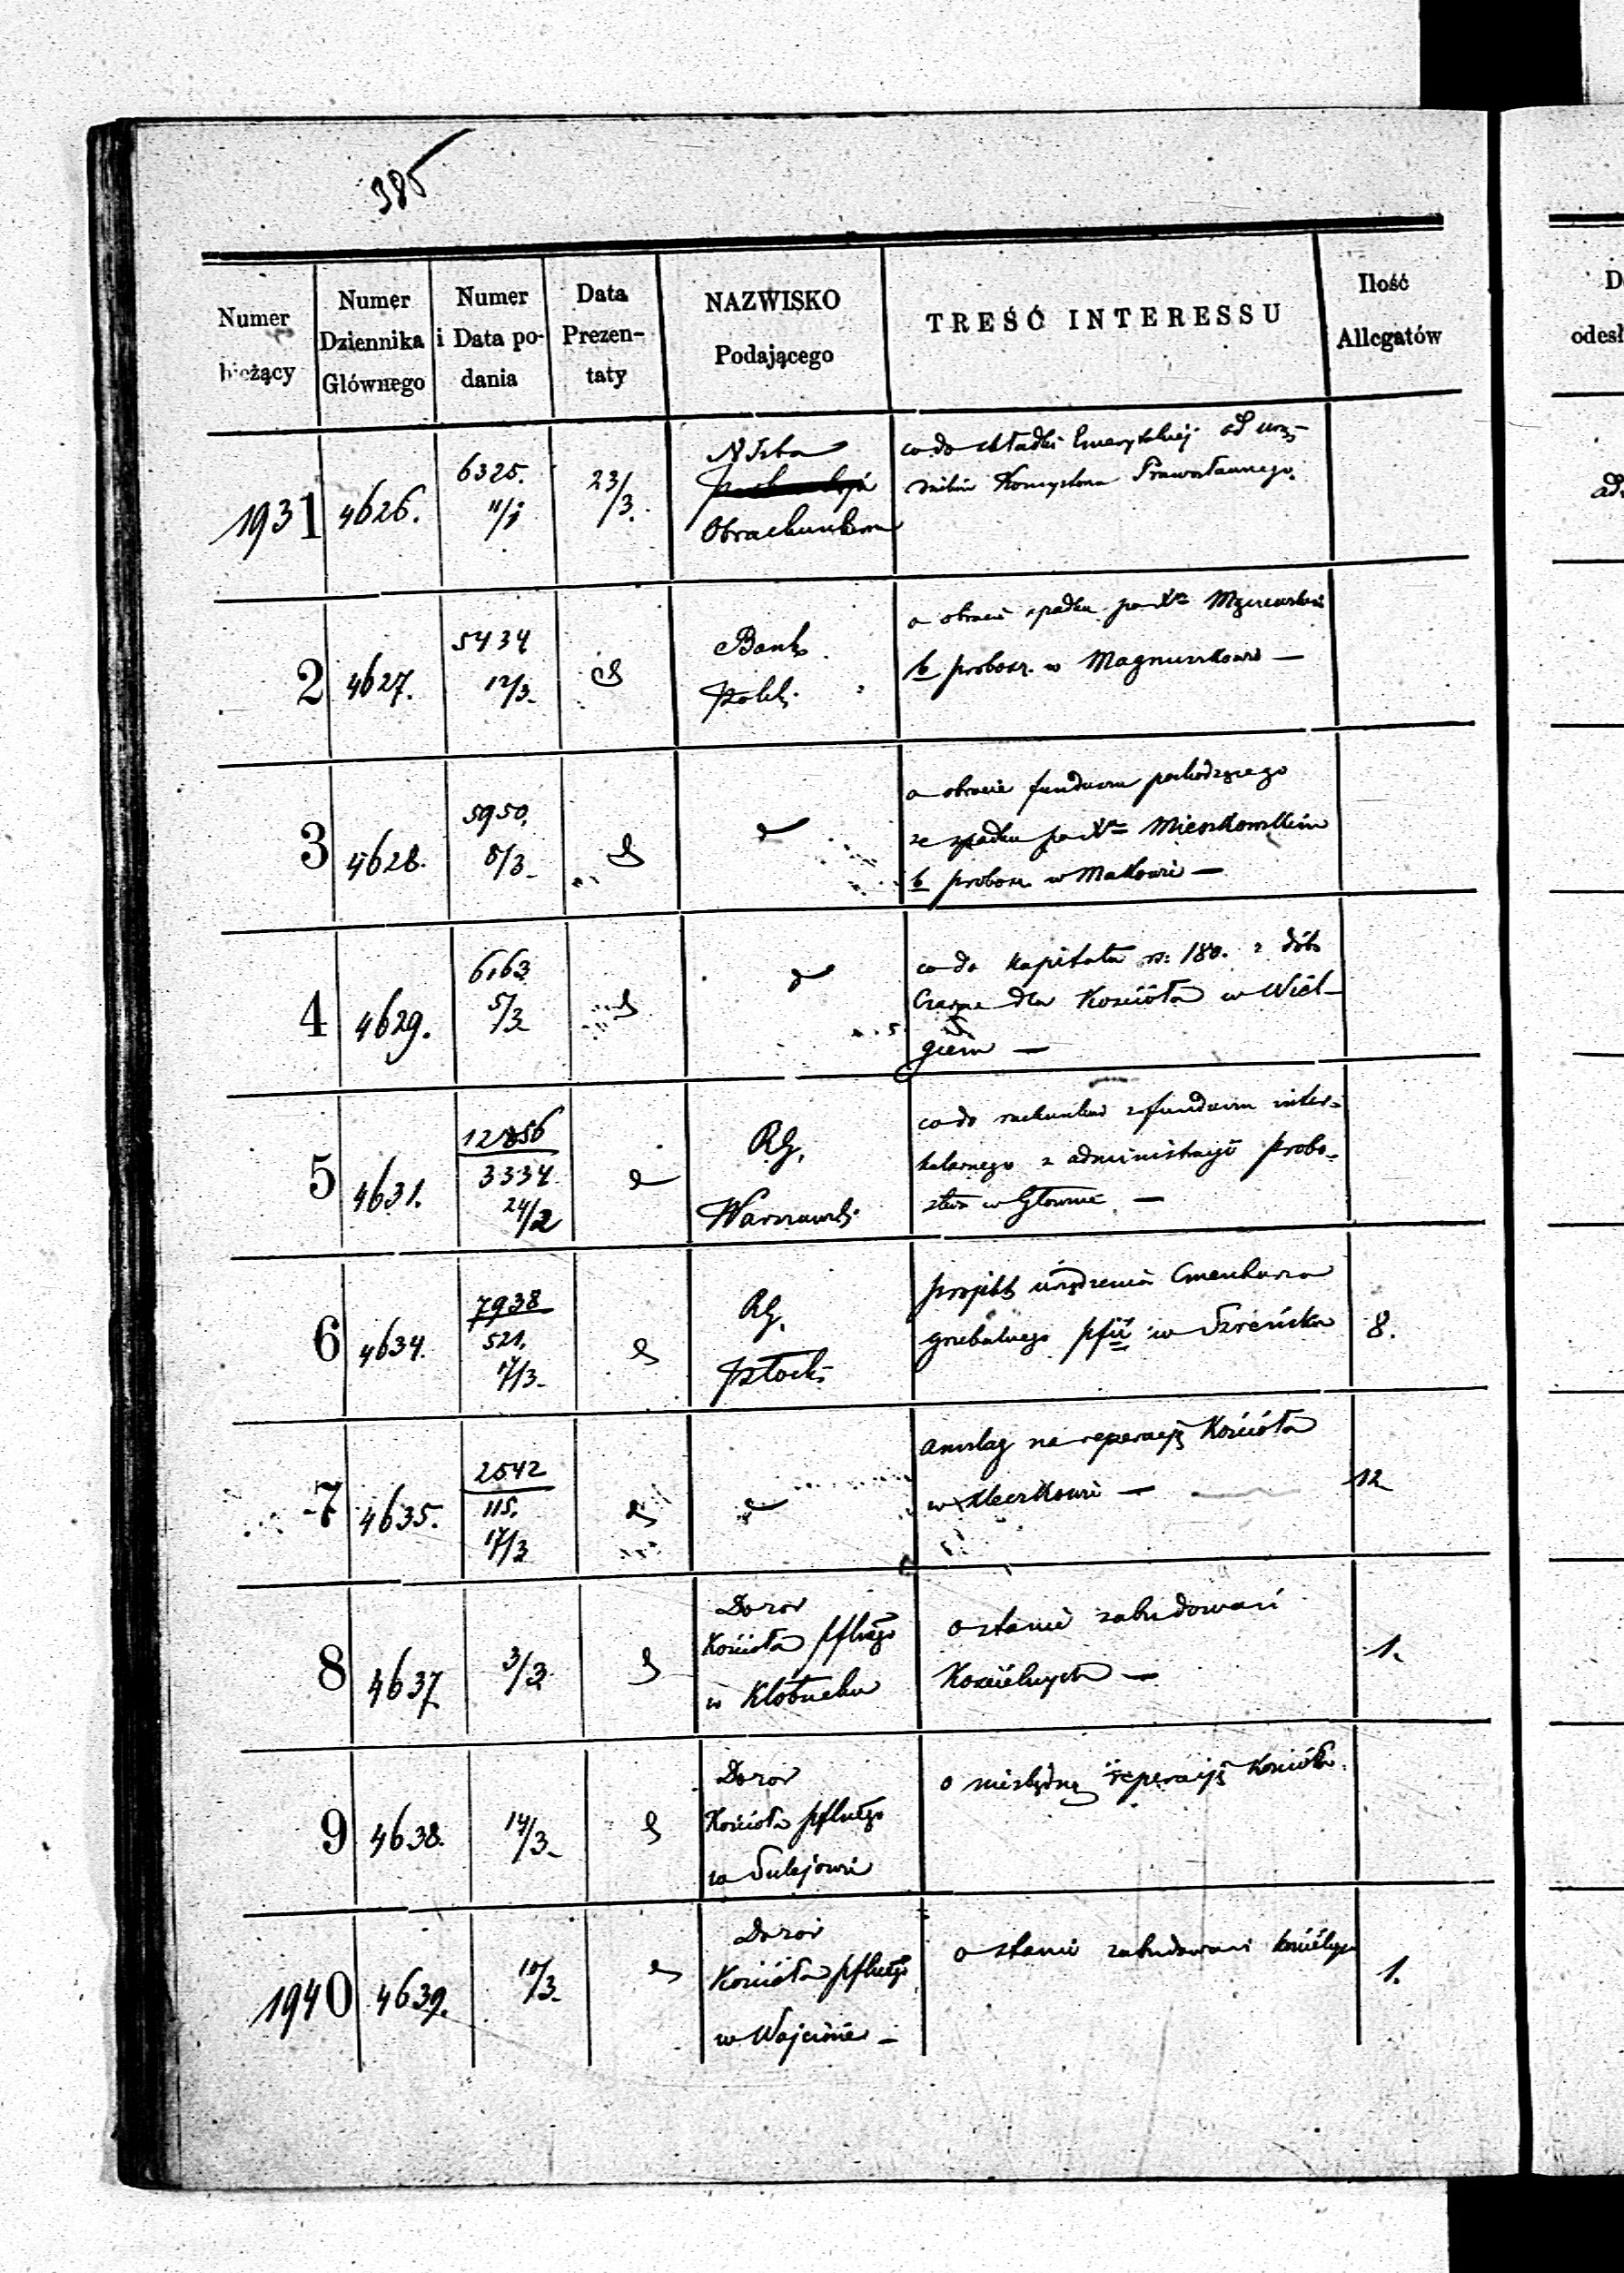 385
Numer bieżący | Numer Dziennika Głównego | Numer i Data podania | Data Prezentaty | NAZWISKO Podającego | TREŚĆ INTERESSU | Ilość Allegatów
1931 4626. 6325. 23/3.
Obrachunkowa
co do składki Emerytalnej od urzę-
2 4627. 5434 12/3.
Bank
Polski
o obrocie spadku po Xu
b. probosz. w Magnuszewie —
3 4628. 5950. 5/3.
o obrocie funduszu pochodzącego
ze spadku po Xu Mieszkowskim
b probosz. w Makowie —
4 4629. 6163 5/3
co do kapitału rs: 180. z dób
Czarne dla Kościoła w Wiel-
giem —
5 4631. 12856 3334 24/2
RG.
Warszawski
co do rachunków z funduszu inter-
kalarnego z administracyi probo-
stwa w Głownie —
6 4634. 7938 521. 17/3.
RG.
Płocki
projekt urządzenia Cmentarza
grzebalnego pfii w Szreńsku
8.
7 4635. 2542 115. 17/3
anszlag na reperacyę Kościoła
12
8 4637 3/3
Dozór
Kościoła pflnego
w Kłobucku
o stanie zabudowań
Kościelnych —
1.
9 4638. 14/3.
Dozór
Kościoła pflnego
w Sulejowie
o niezbędną reperacyę Kościoła.
1940 4639. 10/3.
Dozór
Kościoła pflnego
w Wójcinie —
o stanie zabudowań kościelnych
1.
D
odesł
ad.